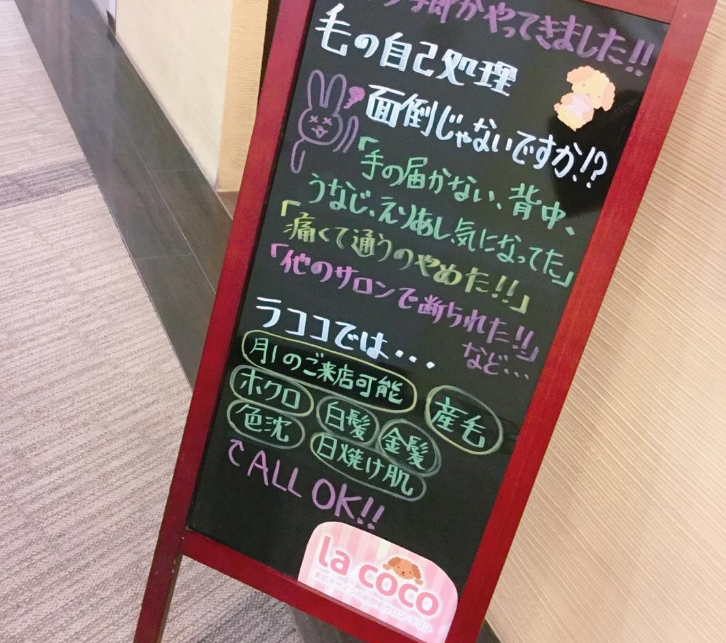 がやってきました!!
毛の自己処理
面倒じゃないですか!?
「手の届かない、背中、
うなじ、えりあし、気になってた」
「痛くて通うのやめた!!」
「他のサロンで断られた!!」
など…
ラココでは…
月1のご来店可能
産毛
ホクロ
白髪
金髪
色沈
日焼け肌
ALL OK!!
la coco